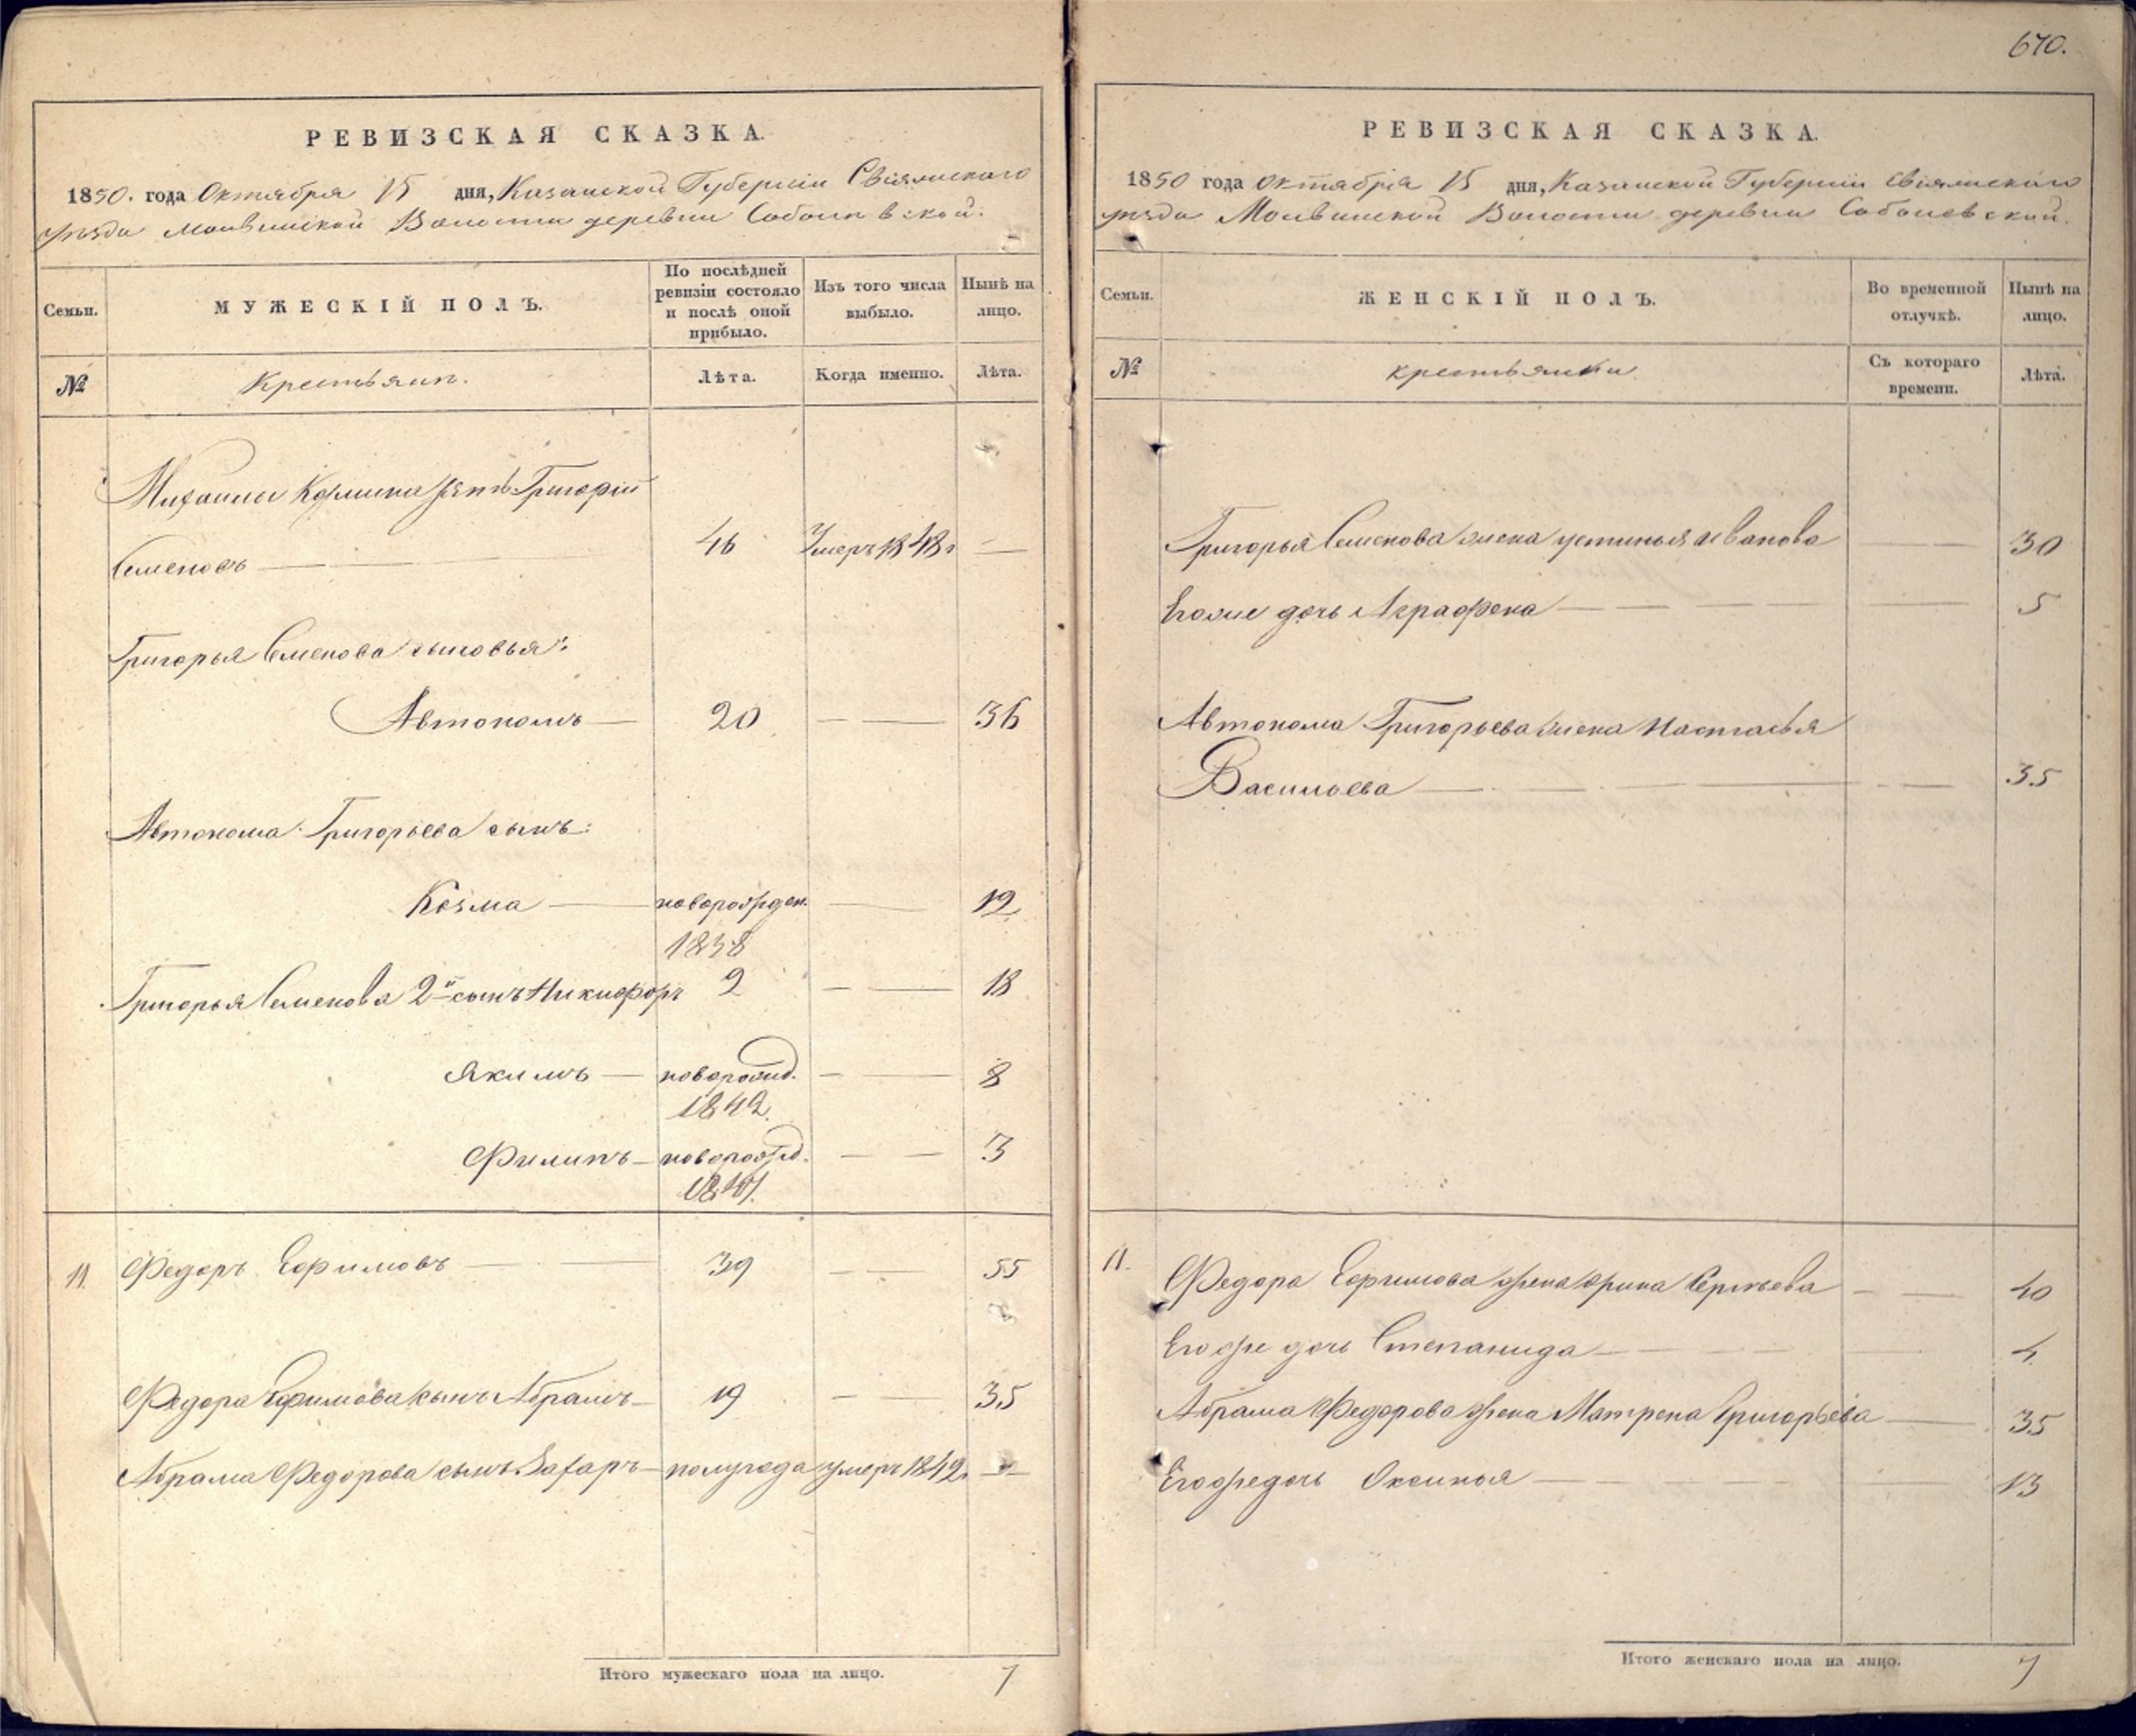 670.
РЕВИЗСКАЯ СКАЗКА.
1850. года Октября 15 дня, Казанской Губернiи Свiяжскаго
уѣзда Молвинской Волости деревни Соболевской.
Семьи.
МУЖЕСКІЙ ПОЛЪ.
По послѣдней ревизіи состояло и послѣ оной прибыло.
Изъ того числа выбыло.
Нынѣ на лицо.
№
Крестьяне.
Лѣта.
Когда именно.
Лѣта.
Михайлы Козмина зять Григорій
Семеновъ — 46 Умеръ 1848 г —
Григорья Семенова сыновья:
Автономъ — 20 — — 36
Автонома Григорьева сынъ:
Козма — новорожден. — 12
1838
Григорья Семенова 2й сынъ Никифоръ 2 — — 18
Якимъ — новорожд. — — 8
1842.
Филипъ — новорожд. — — 3
1847.
11. Федоръ Ефимовъ — 39 — — 55
Федора Ефимова сынъ Абрамъ — 19 — — 35
Абрама Федорова сынъ Захаръ — полугода умеръ 1842. —
Итого мужескаго пола на лицо. 7
РЕВИЗСКАЯ СКАЗКА.
1850 года Октября 15 дня, Казанской Губернiи Свiяжскаго
уѣзда Молвинской Волости деревни Соболевской.
Семьи.
ЖЕНСКІЙ ПОЛЪ.
Во временной отлучкѣ.
Нынѣ на лицо.
№
крестьянки
Съ котораго времени.
Лѣта.
Григорья Семенова жена Устинья Иванова — — 30
Егоже дочь Аграфена — — — — 5
Автонома Григорьева жена Настасья
Васильева — — — 35
11. Федора Ефимова жена Орина Сергѣева — — 40
Егоже дочь Степанида — — — 4
Абрама Федорова жена Матрена Григорьева — 35
Егоже дочь Оксинья — — — 13
Итого женскаго пола на лицо. 7